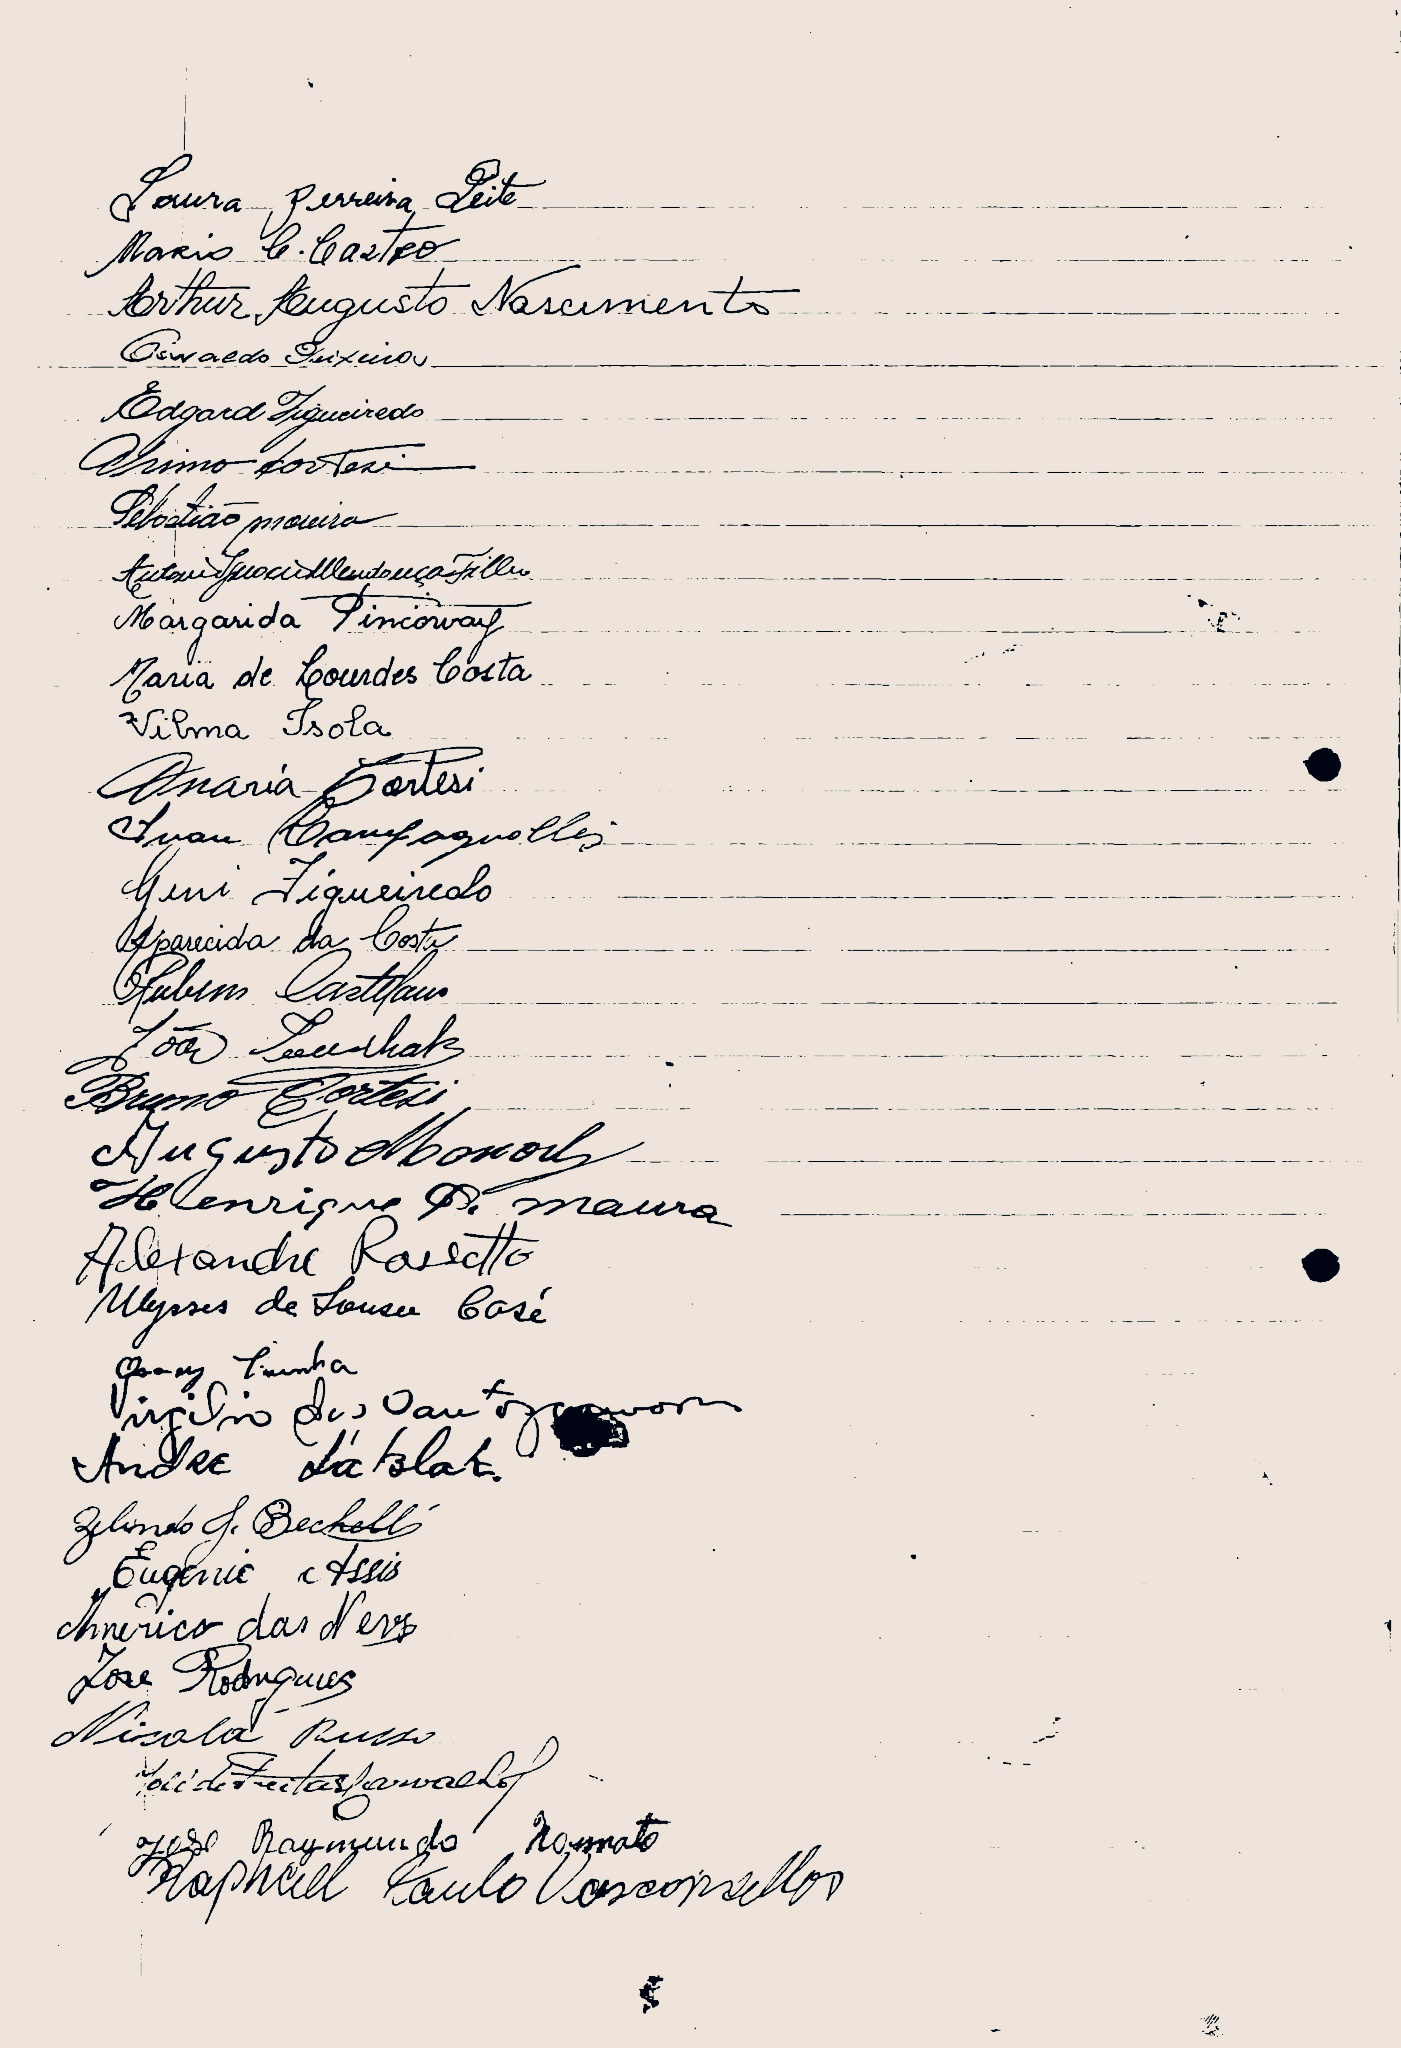 Laura Perreira Leite
Mario C. Castro
Arthur Augusto Nascimento
Oswaldo Teixeira
Edgard Figueiredo
Primo Cortesi
Sebastião Moreira
Antonio Ignacio Mendonça Filho
Margarida
Maria de Lourdes Costa
Vilma Isola
Maria Cortesi
Ivan Campagnollis
Meni Figueiredo
Aparecida da Costa
Rubens Castelano
João
Bruno Cortesi
Augusto
Henrique P. Maura
Alexandre Rossetto
Ulysses de Sousa Casé
Cunha
Virgilio dos
Andre
Zelindo J. Bechelli
Eugenio Assis
Americo das Neves
Jose Rodrigues
Nicola Russo
José de Freitas Carvalho
José Raymundo
Raphael Paulo Vasconsellos